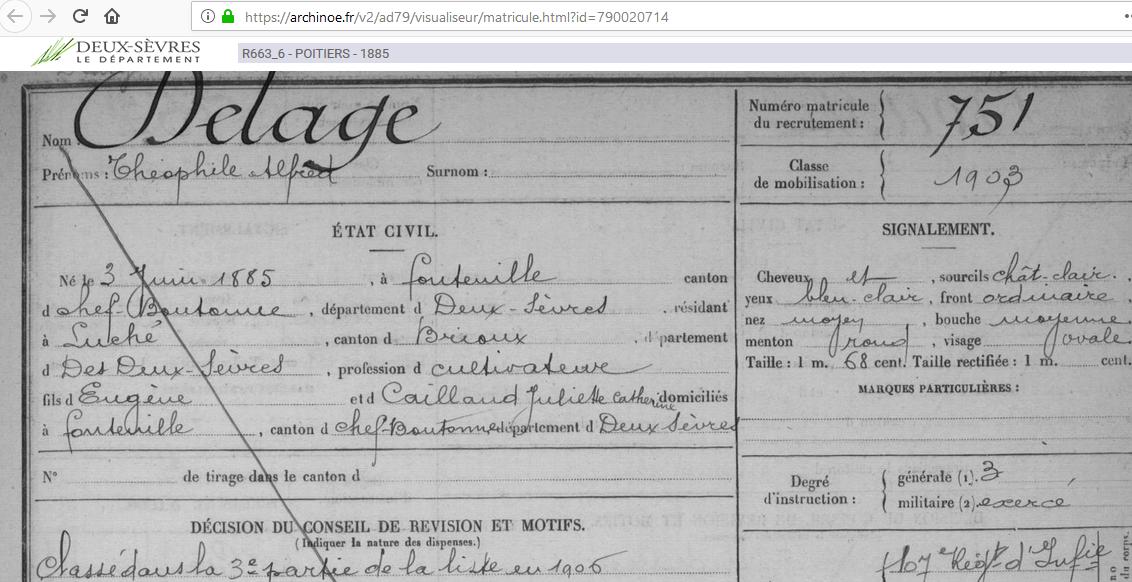 https://archinoe.fr/v2/ad79/visualiseur/matricule.html?id=790020714
DEUX-SÈVRES
LE DÉPARTEMENT
R663_6 - POITIERS - 1885
Nom : Delage
Prénoms : Théophile Alfred Surnom :
Numéro matricule
du recrutement : 751
Classe
de mobilisation : 1903
ÉTAT CIVIL.
Né le 3 Juin 1885, à fontenille canton
d chef-Boutonne, département d Deux-Sèvres résidant
à Luché, canton d Brioux, département
d Des Deux-Sèvres, profession d cultivateur
fils d Eugène et d Caillaud Juliette Catherine domiciliés
à fontenille, canton d chef-Boutonne, département d Deux Sèvres
N° de tirage dans le canton d
DÉCISION DU CONSEIL DE REVISION ET MOTIFS.
(Indiquer la nature des dispenses.)
Classé dans la 3e partie de la liste en 1906
SIGNALEMENT.
Cheveux et, sourcils chât-clair.
yeux bleu-clair, front ordinaire
nez moyen, bouche moyenne
menton rond, visage ovale
Taille : 1 m. 68 cent. Taille rectifiée : 1 m. cent.
MARQUES PARTICULIÈRES :
Degré
d'instruction :
générale (1). 3
militaire (2). exercé
107 Régt d'Infie
du corps.